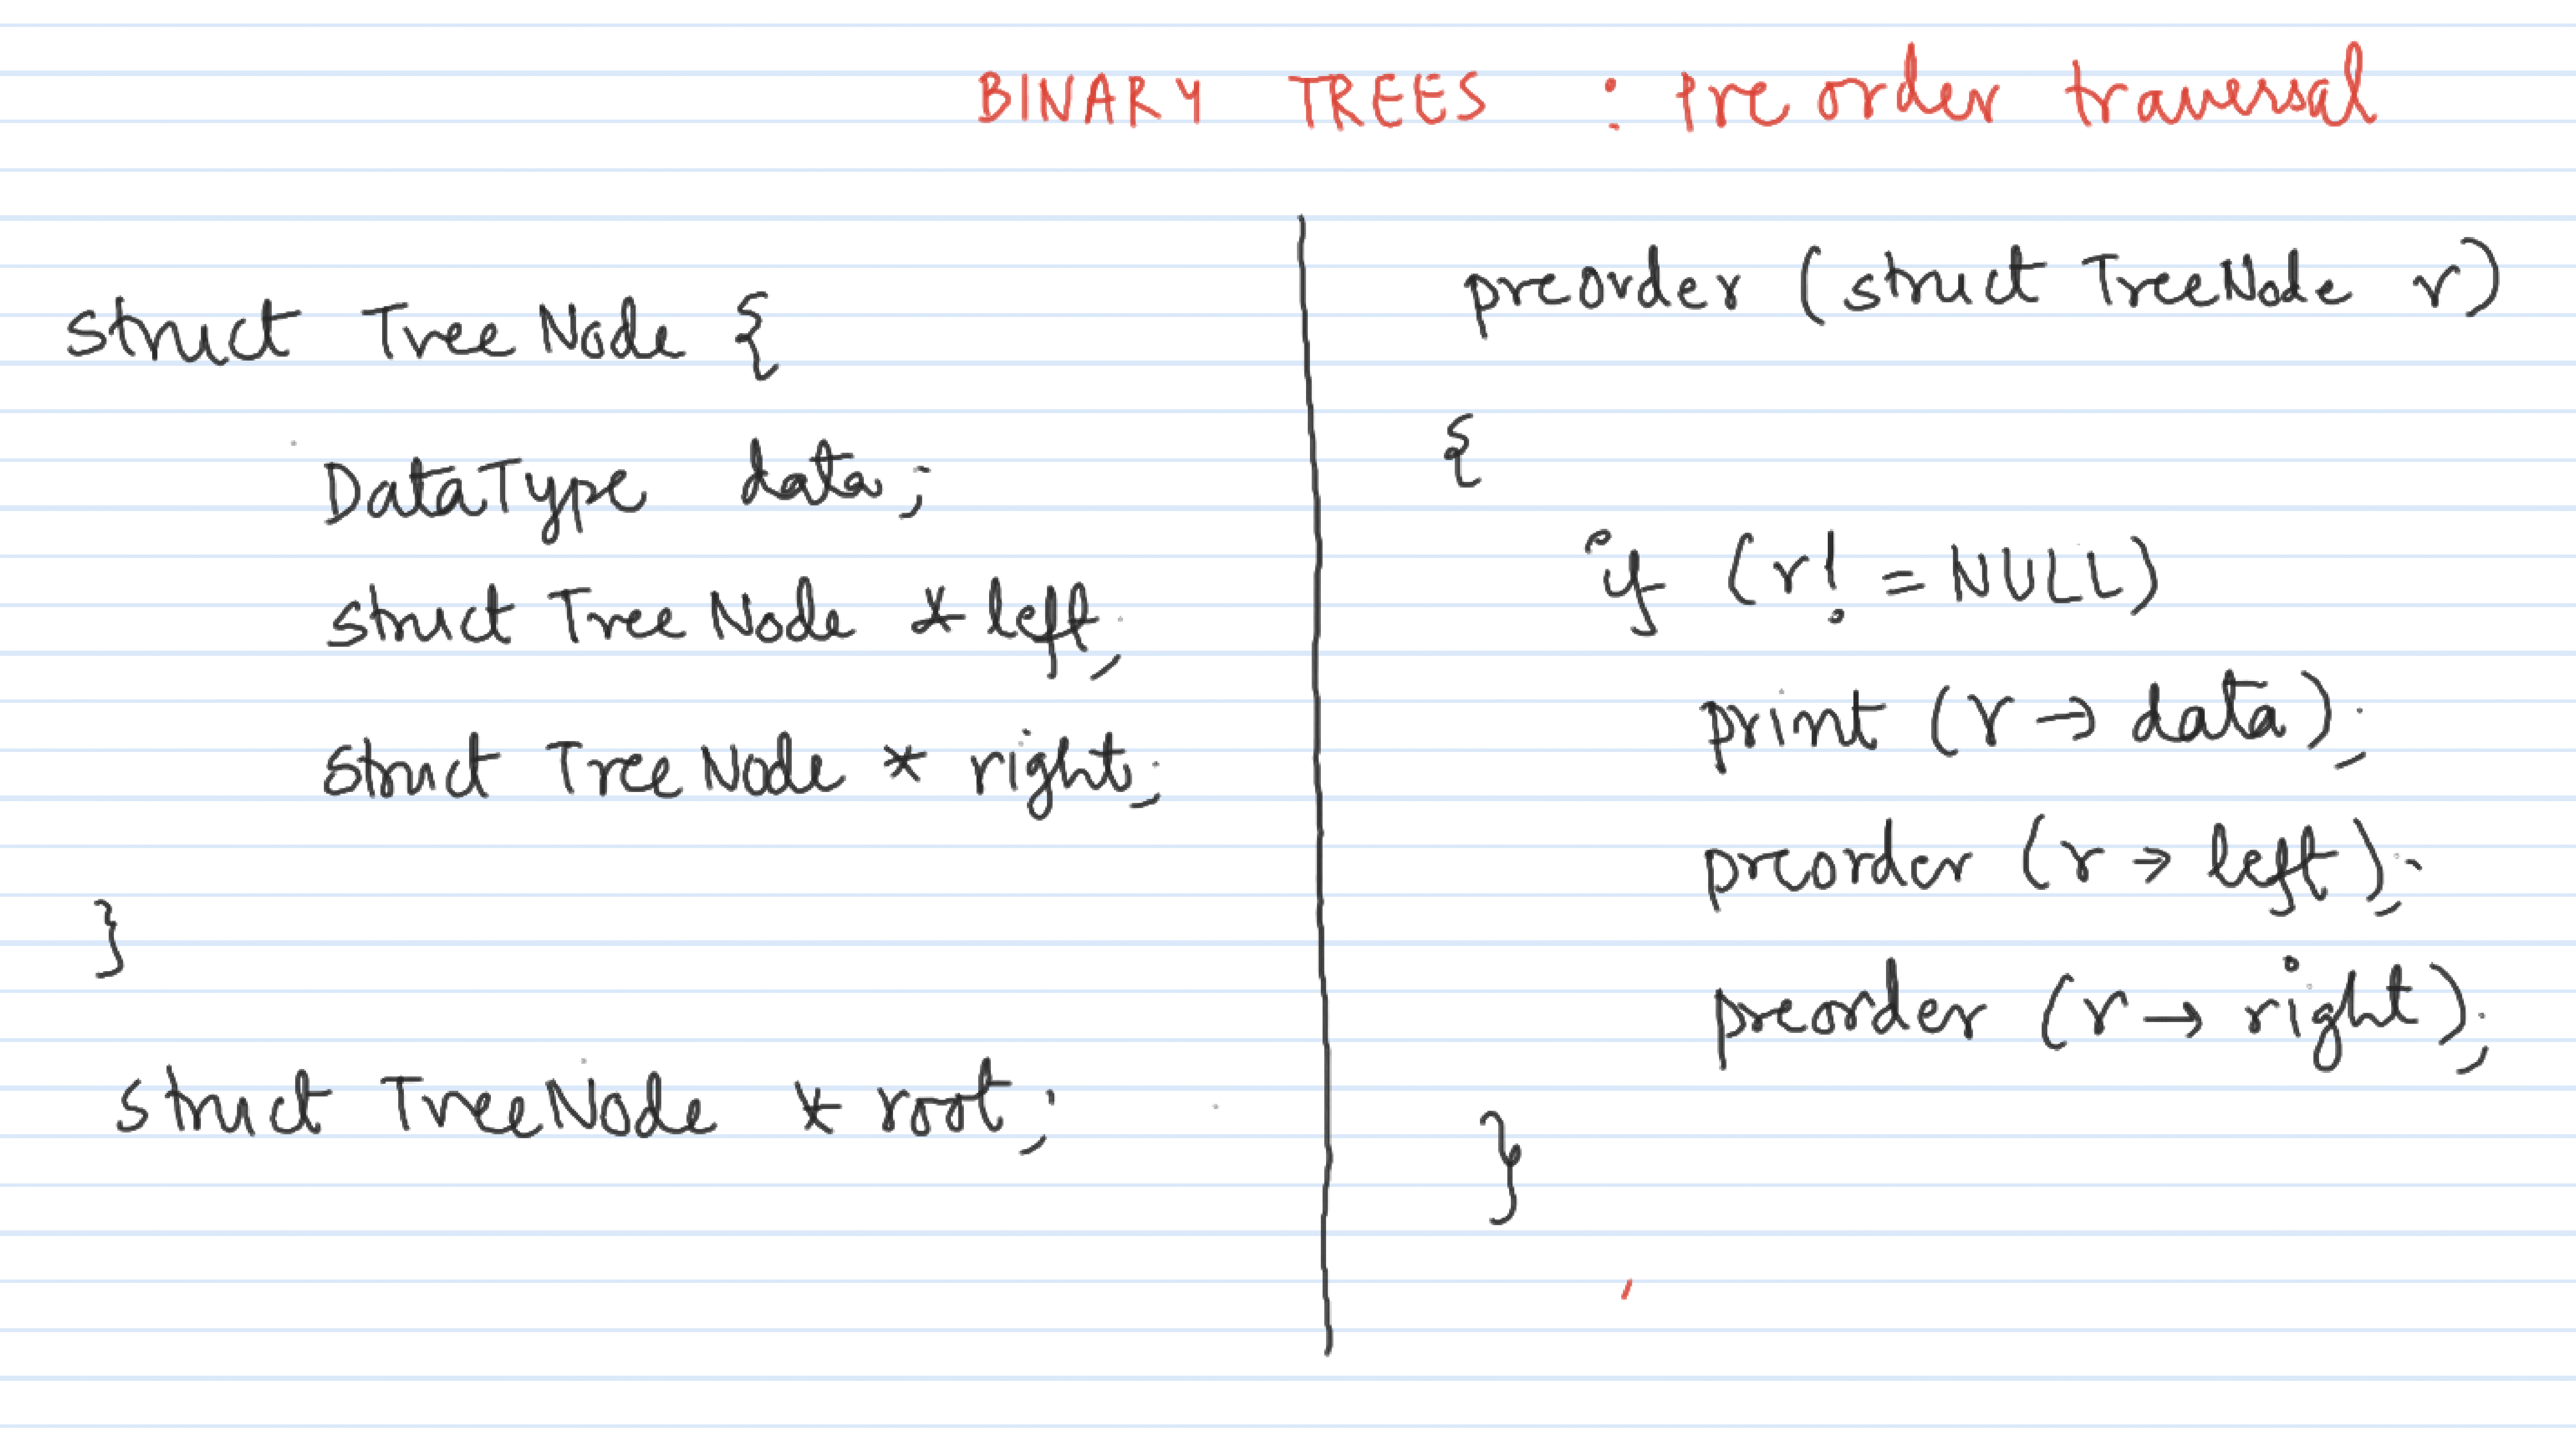 BINARY TREES : Pre order traversal
struct TreeNode {
DataType data;
struct TreeNode *left;
struct TreeNode * right;
}
struct TreeNode * root;
preorder (struct TreeNode r)
{
if (r! = NULL)
print (r → data);
preorder (r → left);
preorder (r → right);
}